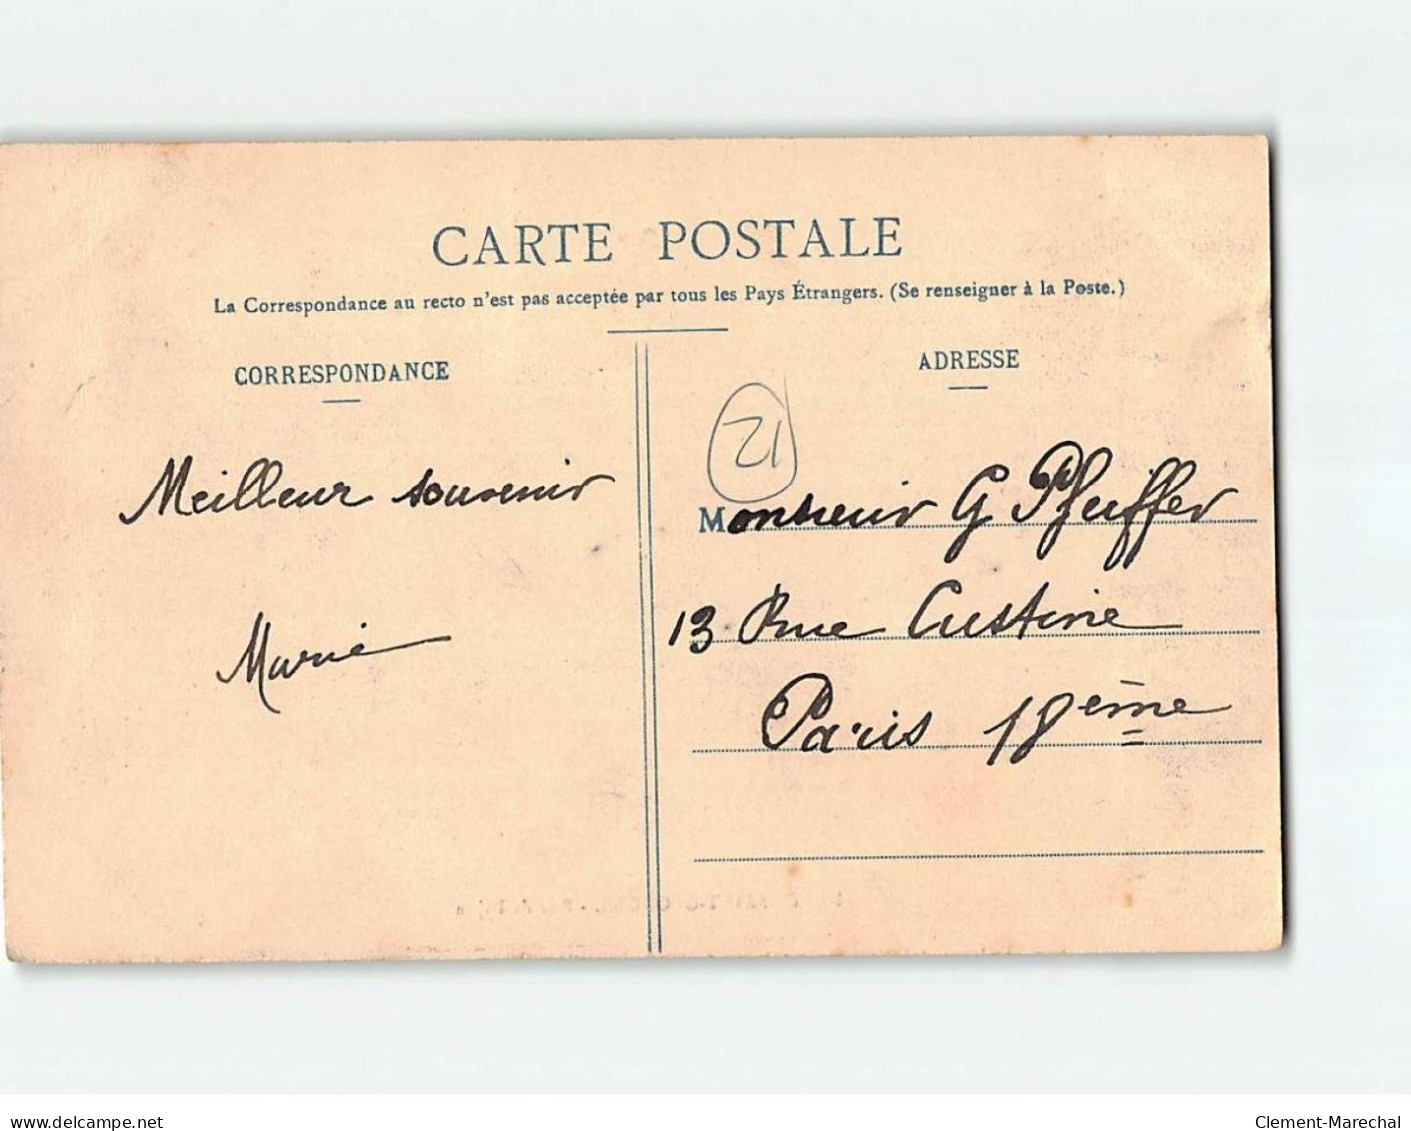 CARTE POSTALE
La Correspondance au recto n'est pas acceptée par tous les Pays Étrangers. (Se renseigner à la Poste.)
CORRESPONDANCE
Meilleur souvenir
Marie
ADRESSE
21
Monsieur G Pfeiffer
13 Rue Custine
Paris 18ème
www.delcampe.net
Clement-Marechal